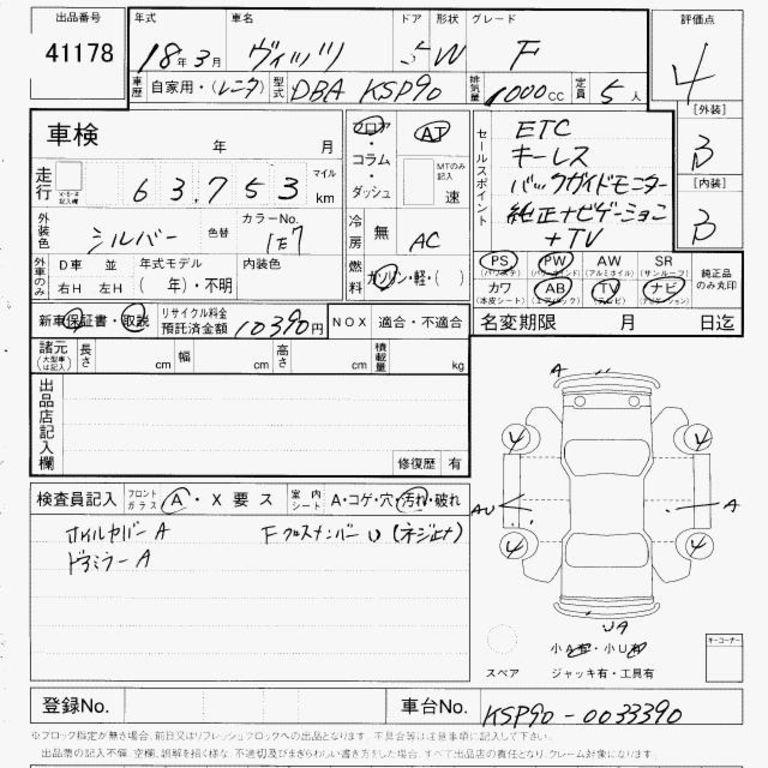 出品番号 年式 車名 ドア 形状 グレード 評価点
41178 18年3月 ヴィッツ 5 W F 4
車歴 自家用・(レンタ) 型式 DBA KSP90 排気量 1000cc 定員 5人
[外装]
B
[内装]
B
車検 年 月
フロア・コラム・ダッシュ AT MTのみ記入 速
セールスポイント
ETC
キーレス
バックガイドモニター
純正ナビゲーション
+TV
走行 63,753 マイル km
外装色 シルバー 色替 カラーNo. 1E7
冷房 無 AC
外車のみ D車 並 年式モデル 内装色
右H 左H (年)・不明
燃料 ガソリン・軽・( )
PS PW AW SR 純正品のみ丸印
(パワステ) (パワーウィンド) (アルミホイル) (サンルーフ)
カワ AB TV ナビ
(本皮シート) (エアバック) (テレビ) (ナビゲーション)
新車保証書・取説 リサイクル料金預託済金額 10390円 NOX 適合・不適合 名変期限 月 日迄
諸元 (大型車は記入) 長さ cm 幅 cm 高さ cm 積載量 kg
出品店記入欄
修復歴 有
検査員記入 フロントガラス A・X要ス 室内シート A・コゲ・穴・汚れ・破れ
ホイルカバーA Fクロスメンバー U (ネジ止ナ)
ドアミラーA
A
4 4
AU A
4 4
UA
小A有・小U有
スペア ジャッキ有・工具有
キーコーナー
登録No. 車台No. KSP90-0033390
※ブロック指定が無き場合、前日又はリフレッシュブロックへの出品となります。不具合等は注意事項に記入して下さい。
出品票の記入不備、空欄、誤解を招く様な、不適切及びまぎらわしい書き方をした場合、すべて出品店の責任となり、クレーム対象になります。